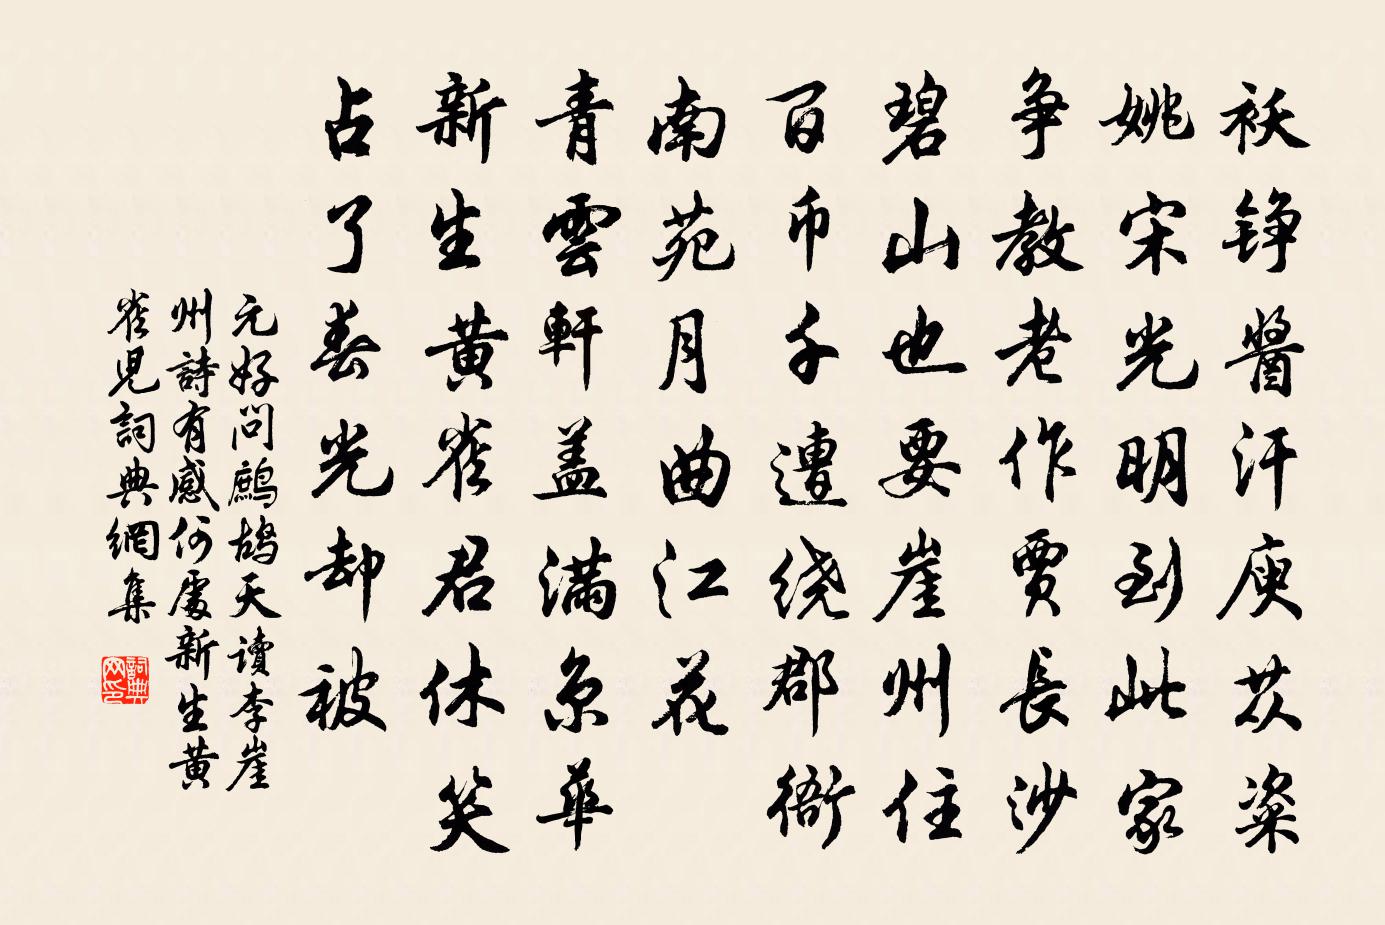 袄铮醬汗庾苡粢
姚宋光明到此家
争教老作賈長沙
碧山也要崖州住
百币千遭绕郡衙
南苑月曲江花
青雲軒盖满京華
新生黄雀君休笑
占了春光却被
元好问鹧鸪天读李崖
州詩有感何處新生黄
雀児詞典網集
詞典网印